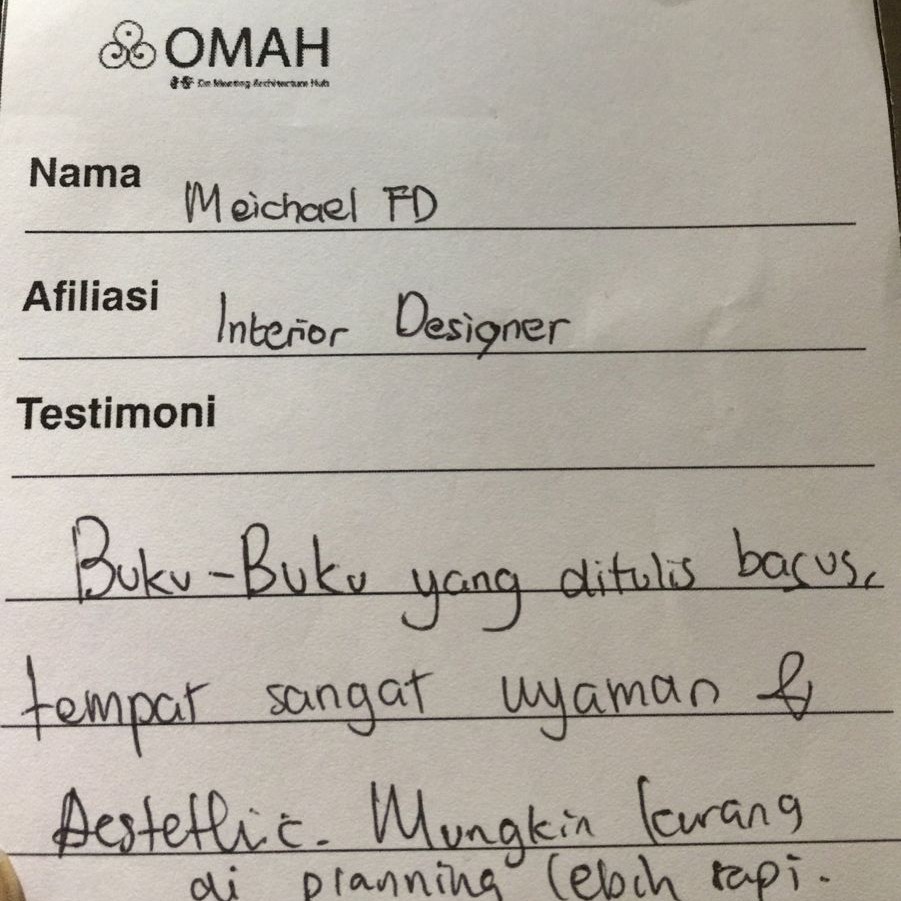 OMAH
Nama Meichael FD
Afiliasi Interior Designer
Testimoni
Buku-Buku yang ditulis bagus,
tempat sangat nyaman &
Aesthetic. Mungkin kurang
di planning lebih rapi.